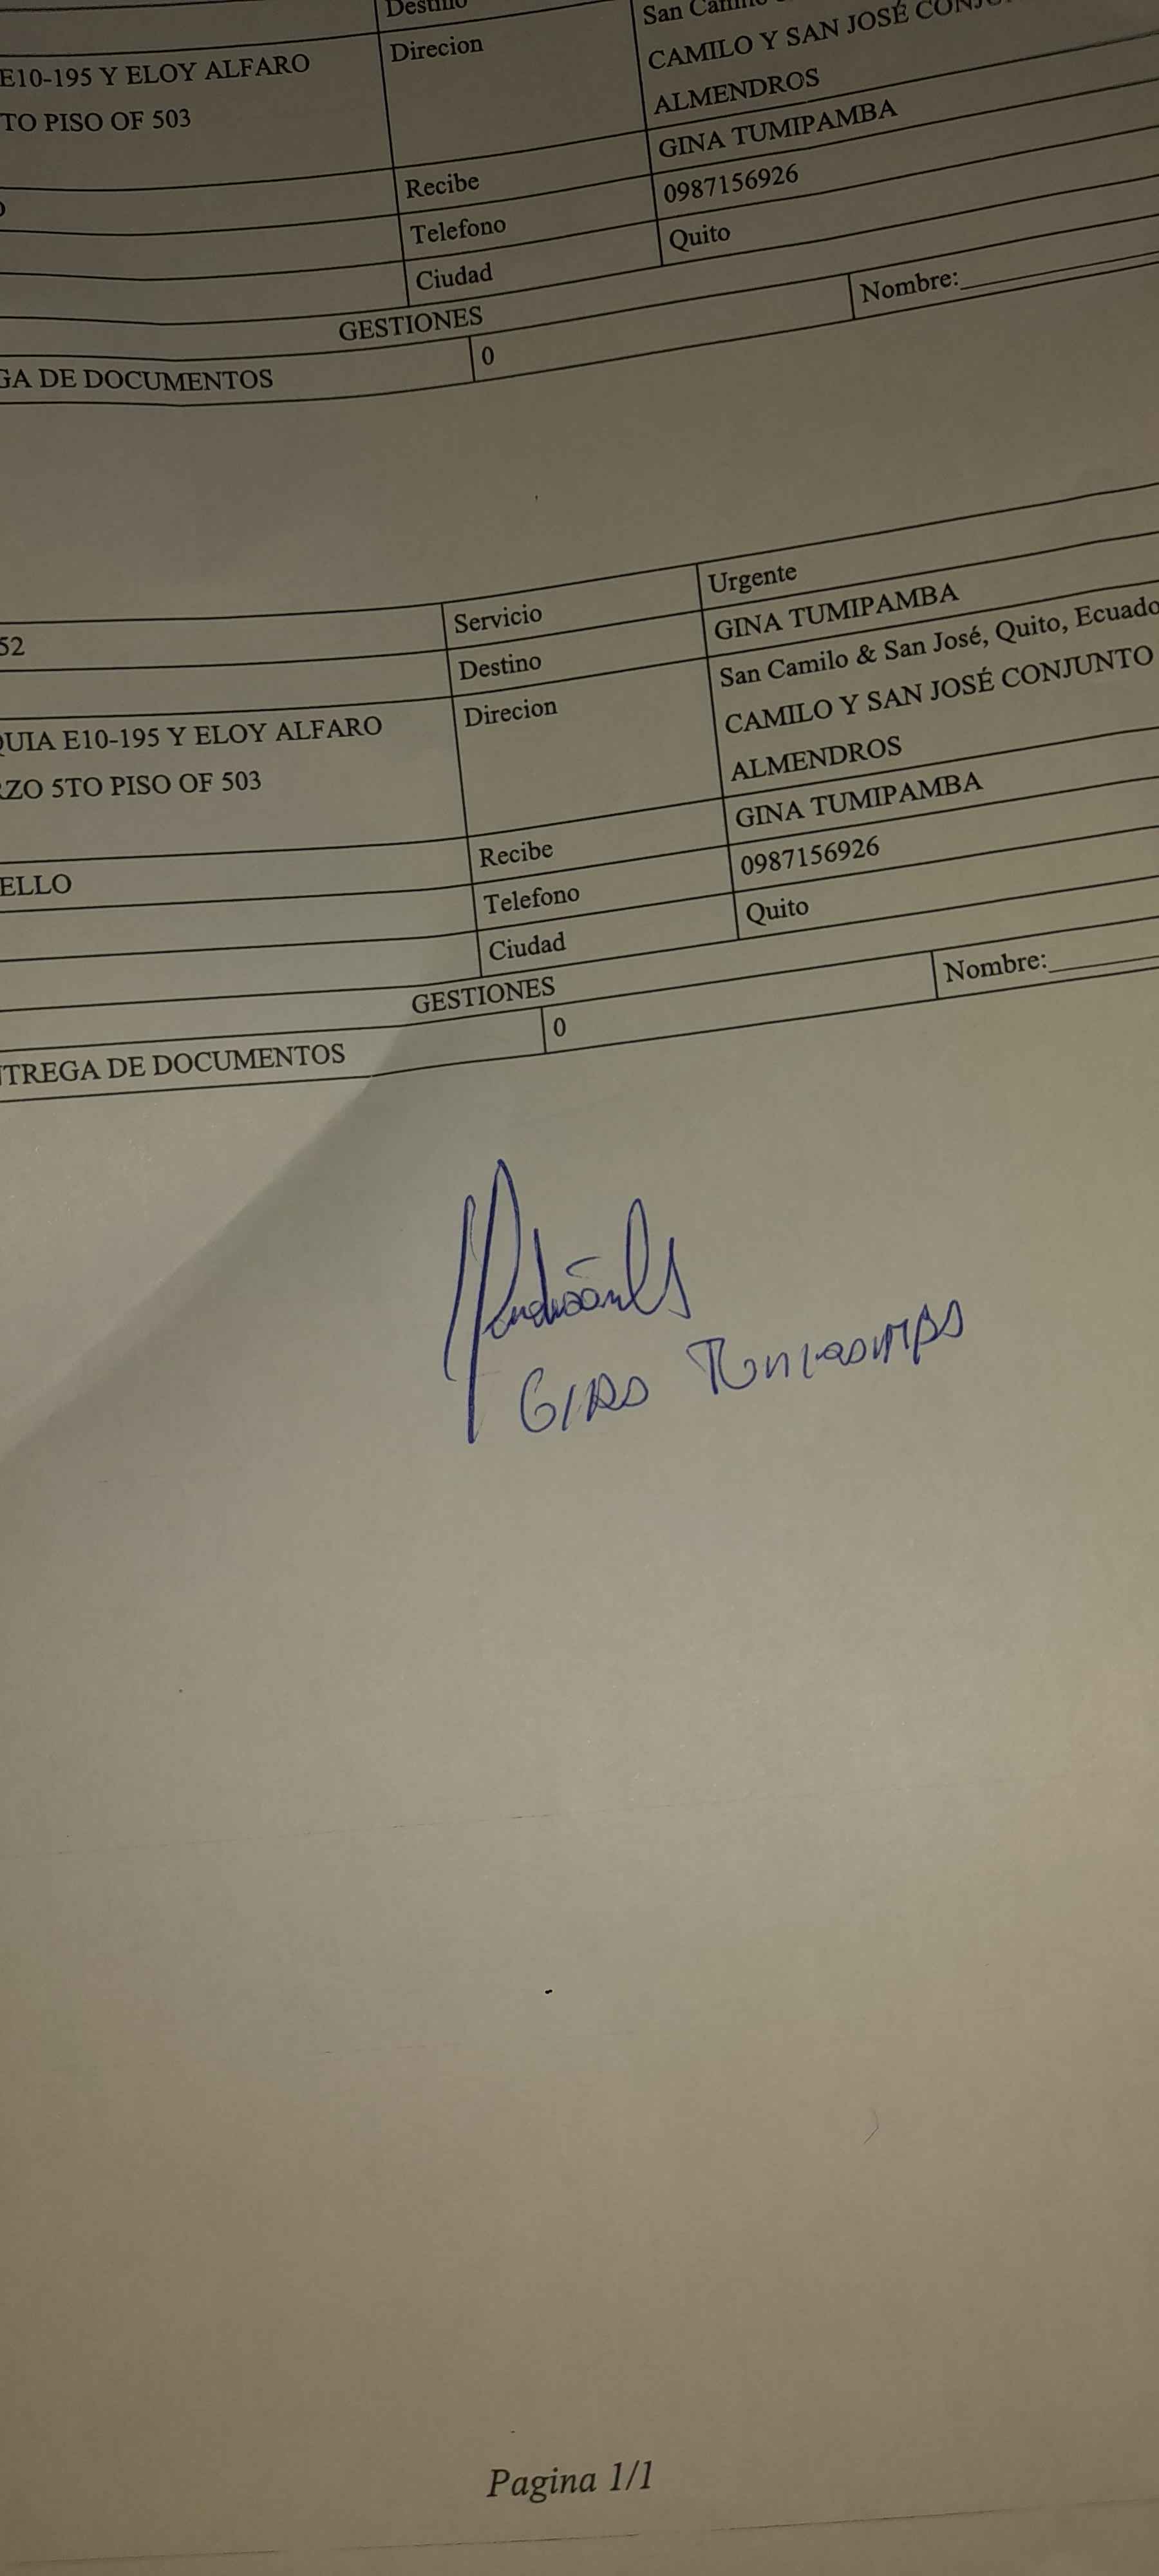 Destino
San Camilo
E10-195 Y ELOY ALFARO
TO PISO OF 503
Direcion
CAMILO Y SAN JOSÉ CONJU
ALMENDROS
Recibe
GINA TUMIPAMBA
Telefono
0987156926
Ciudad
Quito
GESTIONES
GA DE DOCUMENTOS
0
Nombre:
52
Servicio
Urgente
Destino
GINA TUMIPAMBA
QUIA E10-195 Y ELOY ALFARO
RZO 5TO PISO OF 503
Direcion
San Camilo & San José, Quito, Ecuado
CAMILO Y SAN JOSÉ CONJUNTO
ALMENDROS
ELLO
Recibe
GINA TUMIPAMBA
Telefono
0987156926
Ciudad
Quito
GESTIONES
NTREGA DE DOCUMENTOS
0
Nombre:
Pagina 1/1